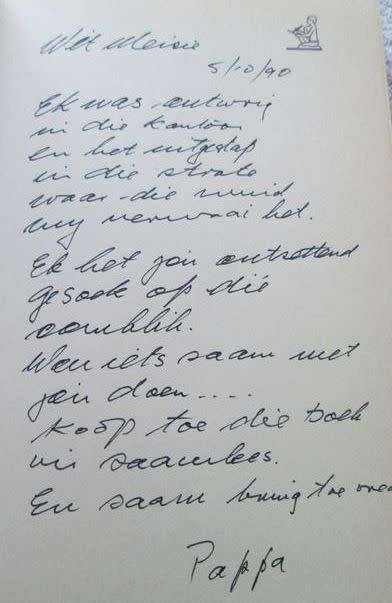 Wit Meisie
5/10/90
Ek was
in die kantoor
en het uitgestap
in die strate
waar die wind
my verwaai het.
Ek het jou ontsettend
gesoek op dié
oomblik.
Wou iets saam met
jou doen....
Koop toe die boek
vir saamlees.
En saam toe
Pappa